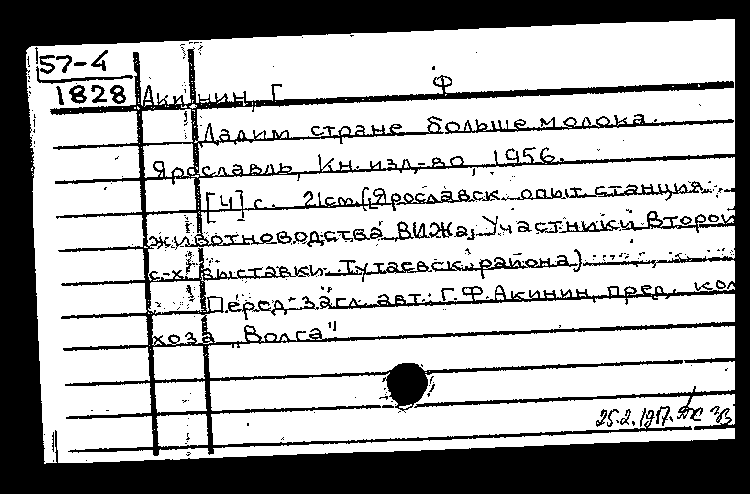 57-4
1828 Акинин, Г Ф
Дадим стране больше молока.
Ярославль, Кн. изд-во, 1956.
[4] с. 21см. (Ярославск. опыт. станция
животноводства ВИЖа, Участники Второй
с-х. выставки Тутаевск. района)
Перед загл. авт.: Г.Ф.Акинин, пред. кол
хоза „Волга"
25.2.1917.